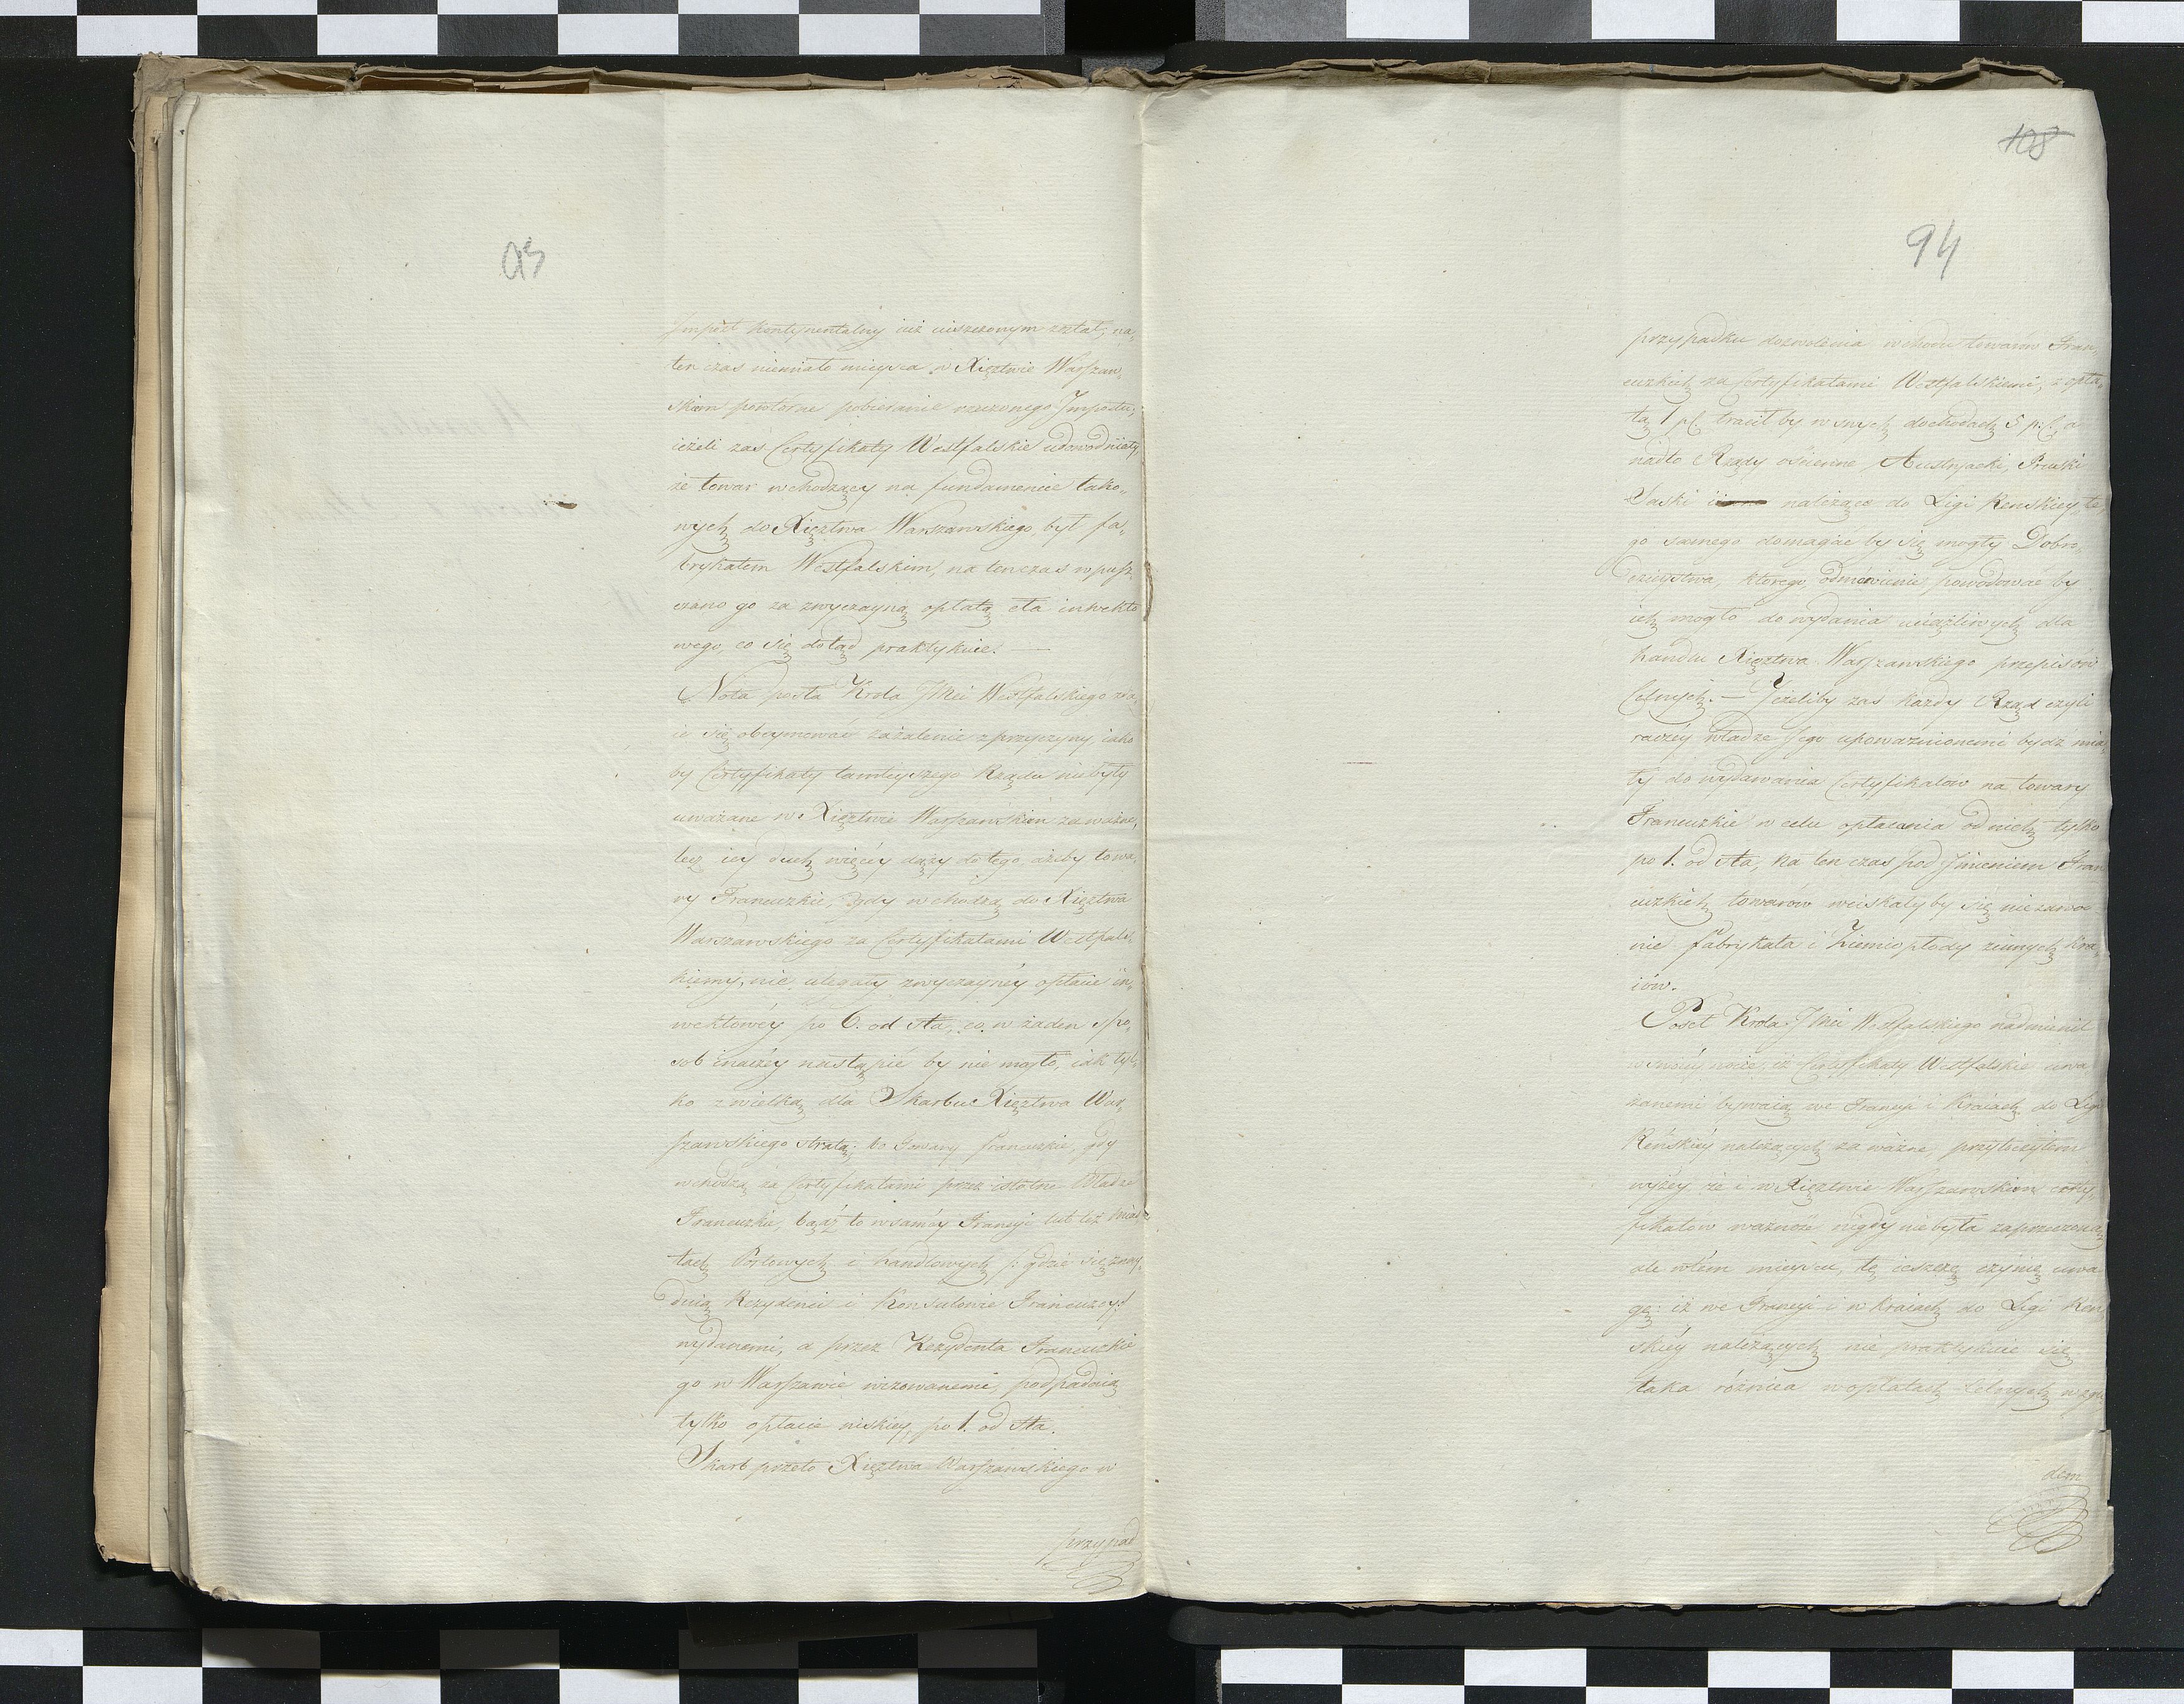 93
Impost kontynentalny iuż uiszczonym został, na„
ten czas niemiało mieysca w Xięztwie Warszaw„
skiem powtorne pobieranie rzeczonego Impostu;
ieżeli zas Certyfikaty Westfalskie udowodniały
że towar wchodzący na fundamencie tako„
wych do Xięztwa Warszawskiego był fa„
brykatem Westfalskim, na tenczas wpusz„
czano go za zwyczayną opłatą cła inwekto
wego, co się dotąd praktykuie. —
Nota posła Krola JMci Westfalskiego zda„
ie się obeymować zażalenie z przyczyny, iako
by Certyfikaty tamteyszego Rządu nie były
uważane w Xięztwie Warszawskiem za ważne,
lecz iey duch więcey dąży do tego, ażeby towa„
ry Francuzkie, gdy wchodzą do Xięztwa
Warszawskiego za Certyfikatami Westfals„
kiemi, nie ulegały zwyczayney opłacie in„
wektowey po 6. od sta, co w żaden spo„
sob inaczey nastąpić by nie mogło, iak tyl„
ko z wielką dla Skarbu Xięztwa War„
szawskiego stratą; bo Towary francuzkie, gdy
wchodzą za Certyfikatami przez istotne Władze
Francuzkie, bądź to w samey Francyi lub też Mias„
tach Portowych i handlowych /: gdzie się znay„
duią Rezydenci i Konsulowie Francuzcy :/
wydanemi, a przez Rezydenta Francuzkie
go w Warszawie wizowanemi, podpadaią
tylko opłacie niskiey, po 1. od sta.
Skarb przeto Xięztwa Warszawskiego w
przypad
108
94
przypadku dozwolenia wchodu towarów Fran„
cuzkich za Certyfikatami Westfalskiemi, z opła„
tą 1 p C. tracił by w swych dochodach 5 p. C., a
nadto Rządy ościenne Austryacki, Pruski
Saski i należące do Ligi Renskiey te
go samego domagać by się mogły Dobro„
dzieystwa, ktorego odmówienie powodować by
ich mogło do wydania uciążliwych dla
handlu Xięztwa Warszawskiego przepisów
Celnych. — Jeżeliby zas każdy Rząd czyli
raczey władze Jego upoważnionemi bydź mia„
ły do wydawania Certyfikatow na towary
Francuzkie w celu opłacania od nich tylko
po 1. od sta, na ten czas pod Jmieniem Fran
cuzkich towarów wciskałyby się niezawod
nie fabrykata i Ziemiopłody innych Kra„
iów.
Poseł Krola JMci Westfalskiego nadmienił
w swoiey nocie, iż Certyfikaty Westfalskie uwa
żanemi bywaią we Francyi i Kraiach do Ligi
Reńskiey należących za ważne, przytoczyłem
wyżey że i w Xięztwie Warszawskiem certy
fikatów ważność nigdy nie była zaprzeczoną
ale w tém mieyscu, tę ieszcze czynię uwa
gę: iż we Francyi i w Kraiach do Ligi Ren
skiey należących nie praktykuie się
taka różnica w opłatach Celnych wzglę
dem